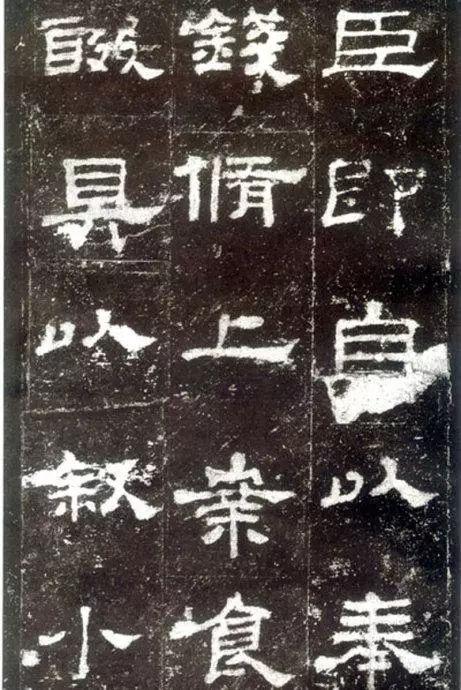 臣即自以奉
錢脩上案食
醊具以叙小